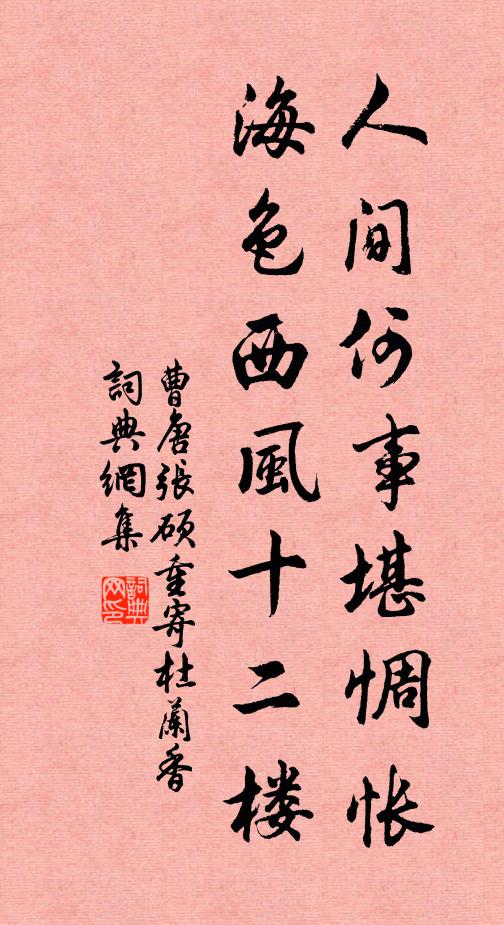 人间何事堪惆怅
海色西風十二楼
曹唐張碩重寄杜蘭香
詞典網集
詞典網印